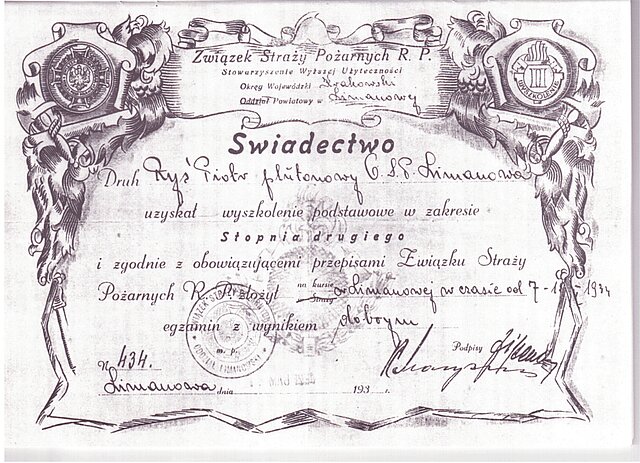 Związek Straży Pożarnych R. P.
Stowarzyszenie Wyższej Użyteczności
Okręg Wojewódzki Krakowski
Oddział Powiatowy w Limanowej
III
Świadectwo
Druh Ryś Piotr plutonowy O.S.P. Limanowa
uzyskał wyszkolenie podstawowe w zakresie
Stopnia drugiego
i zgodnie z obowiązującemi przepisami Związku Straży
Pożarnych R. P. złożył na kursie w Limanowej w czasie od 7-
egzamin z wynikiem dobrym
m. p.
Podpisy
N. 434.
Limanowa dnia 193 r.